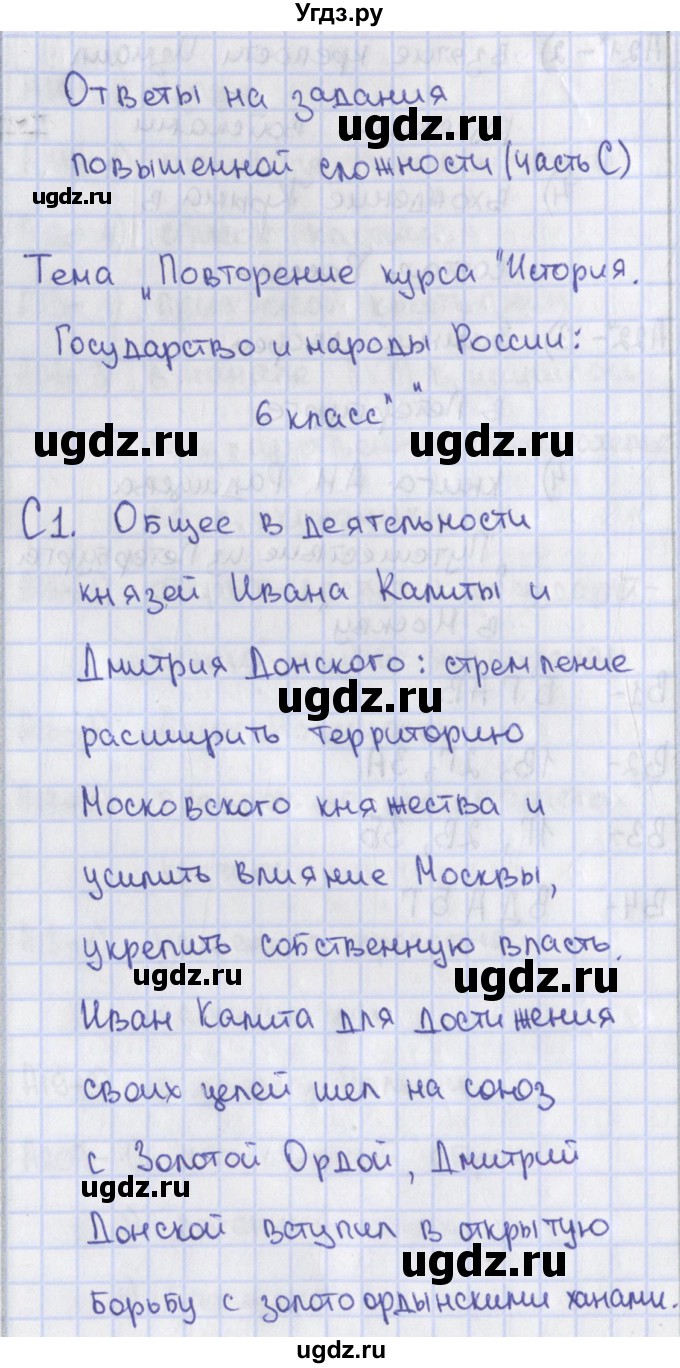 Угдз.ру
Ответы на задания
ugdz.ru
повышенной сложности (часть С)
ugdz.ru
Тема „Повторение курса "История.
Государство и народы России:
6 класс""
ugdz.ru ugdz.ru
С1. Общее в деятельности
князей Ивана Калиты и
Дмитрия Донского: стремление
ugdz.ru
расширить территорию
Московского княжества и
усилить влияние Москвы,
укрепить собственную власть.
ugdz.ru ugdz.ru
Иван Калита для достижения
своих целей шел на союз
с Золотой Ордой, Дмитрий
ugdz.ru
Донской вступил в открытую
ugdz.ru
борьбу с золотоордынскими ханами.
ugdz.ru